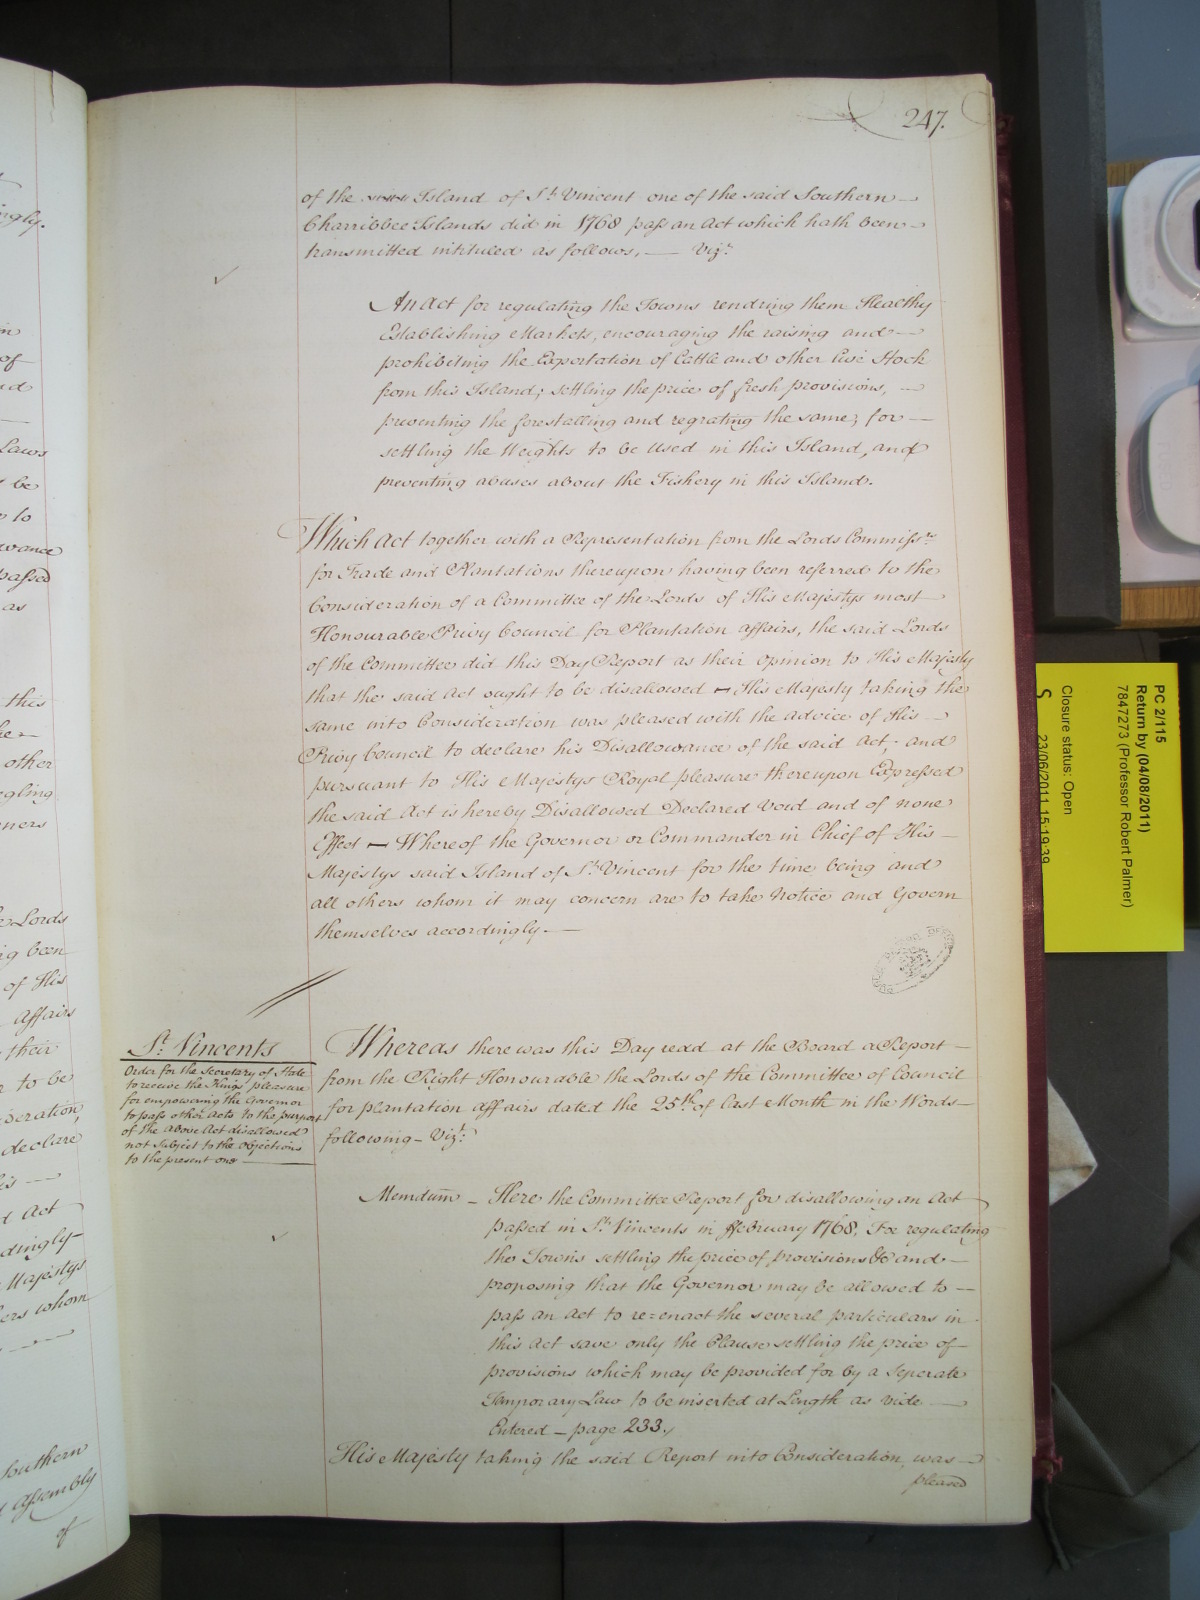 247.
of the Island of St. Vincent one of the said Southern
Charribbee Islands did in 1768 pass an Act which hath been
transmitted intituled as follows, — Vizt.
An Act for regulating the Towns rendring them Healthy
Establishing Markets, encouraging the raising and
prohibiting the Exportation of Cattle and other Live Stock
from this Island; settling the price of fresh provisions,
preventing the forestalling and regrating the same; for
settling the Weights to be Used in this Island, and
preventing abuses about the Fishery in this Island.
Which Act together with a Representation from the Lords Commissrs.
for Trade and Plantations thereupon having been referred to the
Consideration of a Committee of the Lords of His Majestys most
Honourable Privy Council for Plantation affairs, the said Lords
of the Committee did this Day Report as their Opinion to His Majesty
that the said Act ought to be disallowed — His Majesty taking the
same into Consideration was pleased with the advice of His
Privy Council to declare his Disallowance of the said Act; and
pursuant to His Majestys Royal pleasure thereupon Expressed
the said Act is hereby Disallowed Declared Void and of none
Effect — Whereof the Governor or Commander in Chief of His
Majestys said Island of St. Vincent for the time being and
all others whom it may concern are to take Notice and Govern
themselves accordingly.
St. Vincents
Order for the Secretary of State
to receive the Kings pleasure
for empowering the Governor
to pass other Acts to the purport
of the above Act disallowed
not Subject to the Objections
to the present one
Whereas there was this Day read at the Board a Report
from the Right Honourable the Lords of the Committee of Council
for plantation affairs dated the 25th. of last Month in the Words
following — Vizt.
Memdum — Here the Committee Report for disallowing an Act
passed in St. Vincents in ffebruary 1768. For regulating
the Towns settling the price of provisions &c and
proposing that the Governor may be allowed to
pass an Act to re=enact the several particulars in
this Act save only the Clause settling the price of
provisions which may be provided for by a Seperate
Temporary Law to be inserted at Length as vide
Entered — page 233.
His Majesty taking the said Report into Consideration, was
pleased
PC 2/115
Return by (04/08/2011)
7847273 (Professor Robert Palmer)
Closure status: Open
S
23/06/2011 15:19:39